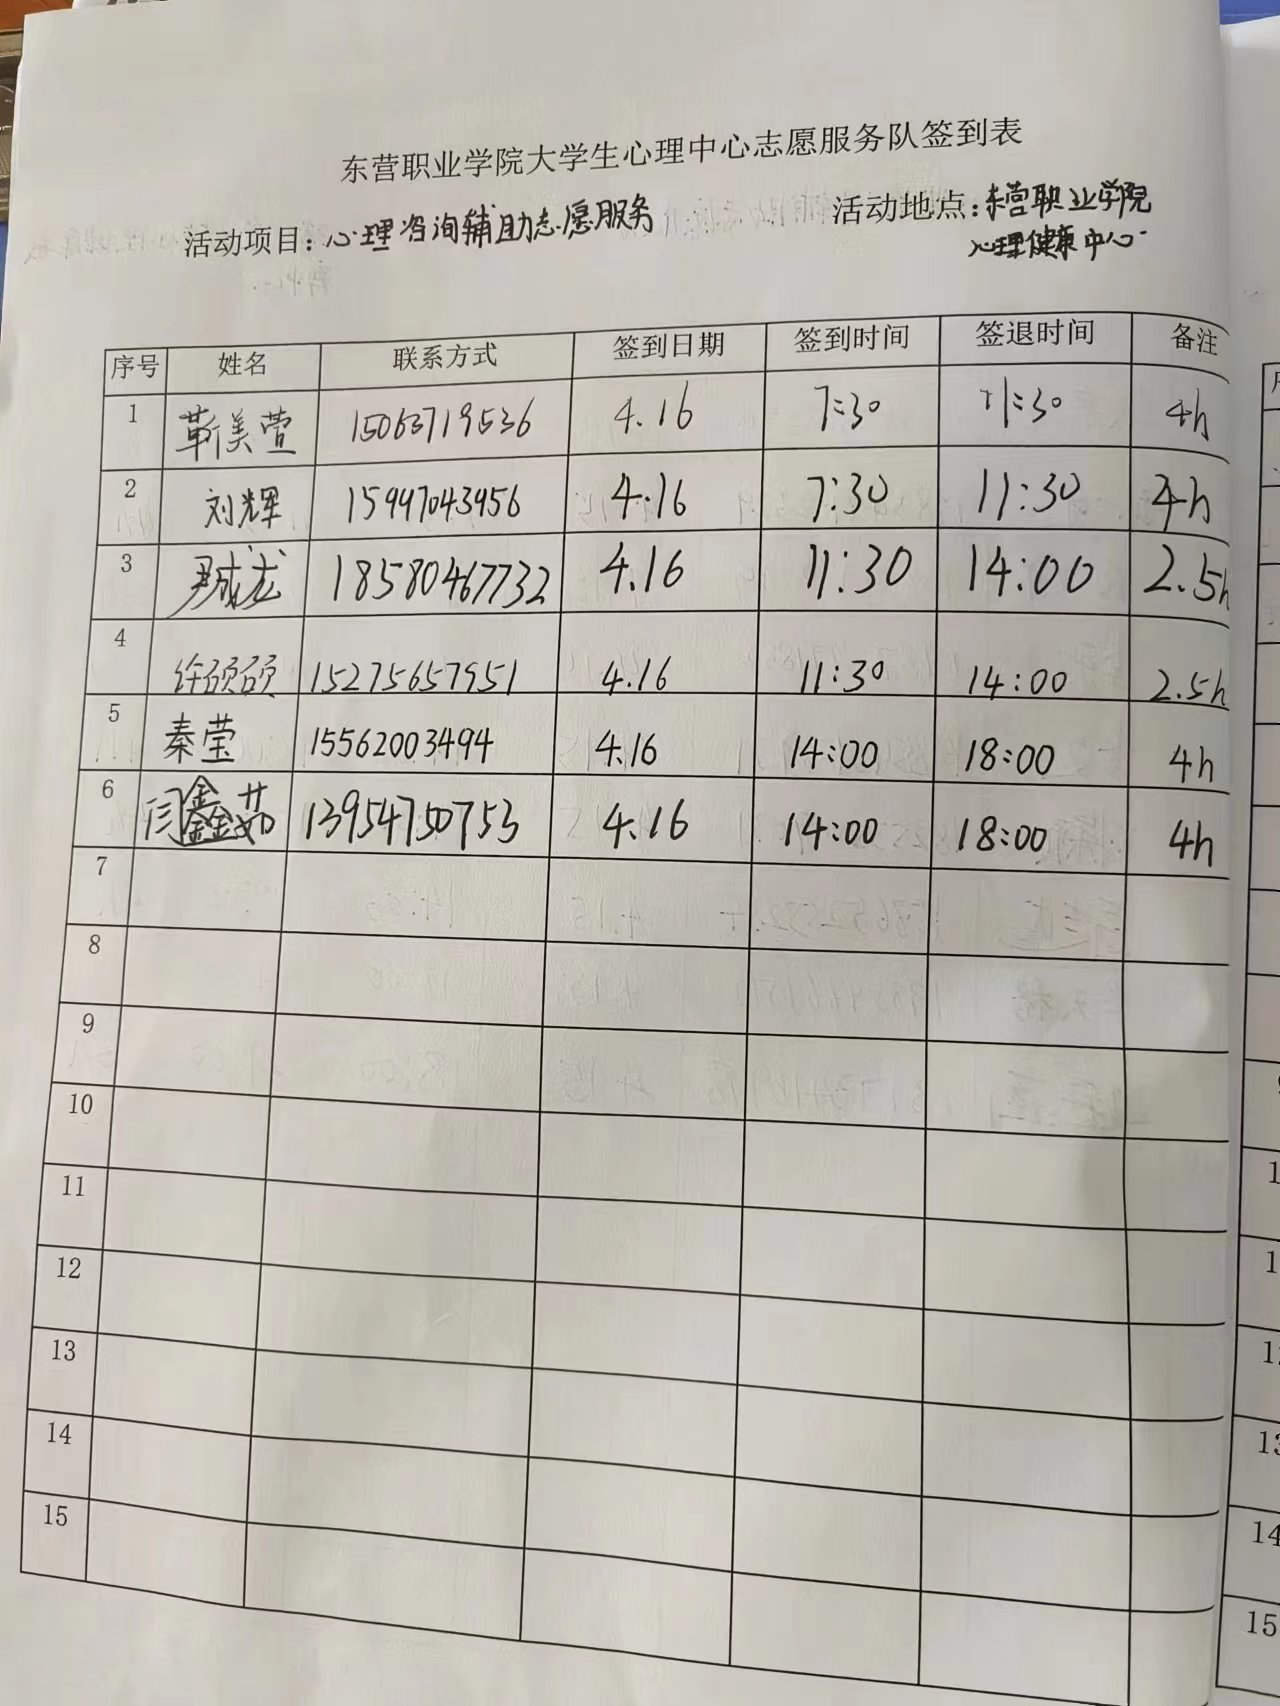 东营职业学院大学生心理中心志愿服务队签到表
活动项目：心理咨询辅助志愿服务 活动地点：东营职业学院
心理健康中心
序号 姓名 联系方式 签到日期 签到时间 签退时间 备注
1 靳美萱 15063719536 4.16 7:30 11:30 4h
2 刘辉 15947043956 4.16 7:30 11:30 4h
3 尹成龙 18580467732 4.16 11:30 14:00 2.5h
4 许硕硕 15275657951 4.16 11:30 14:00 2.5h
5 秦莹 15562003494 4.16 14:00 18:00 4h
6 闫鑫茹 13954750753 4.16 14:00 18:00 4h
7
8
9
10
11
12
13
14
15
13
14
15